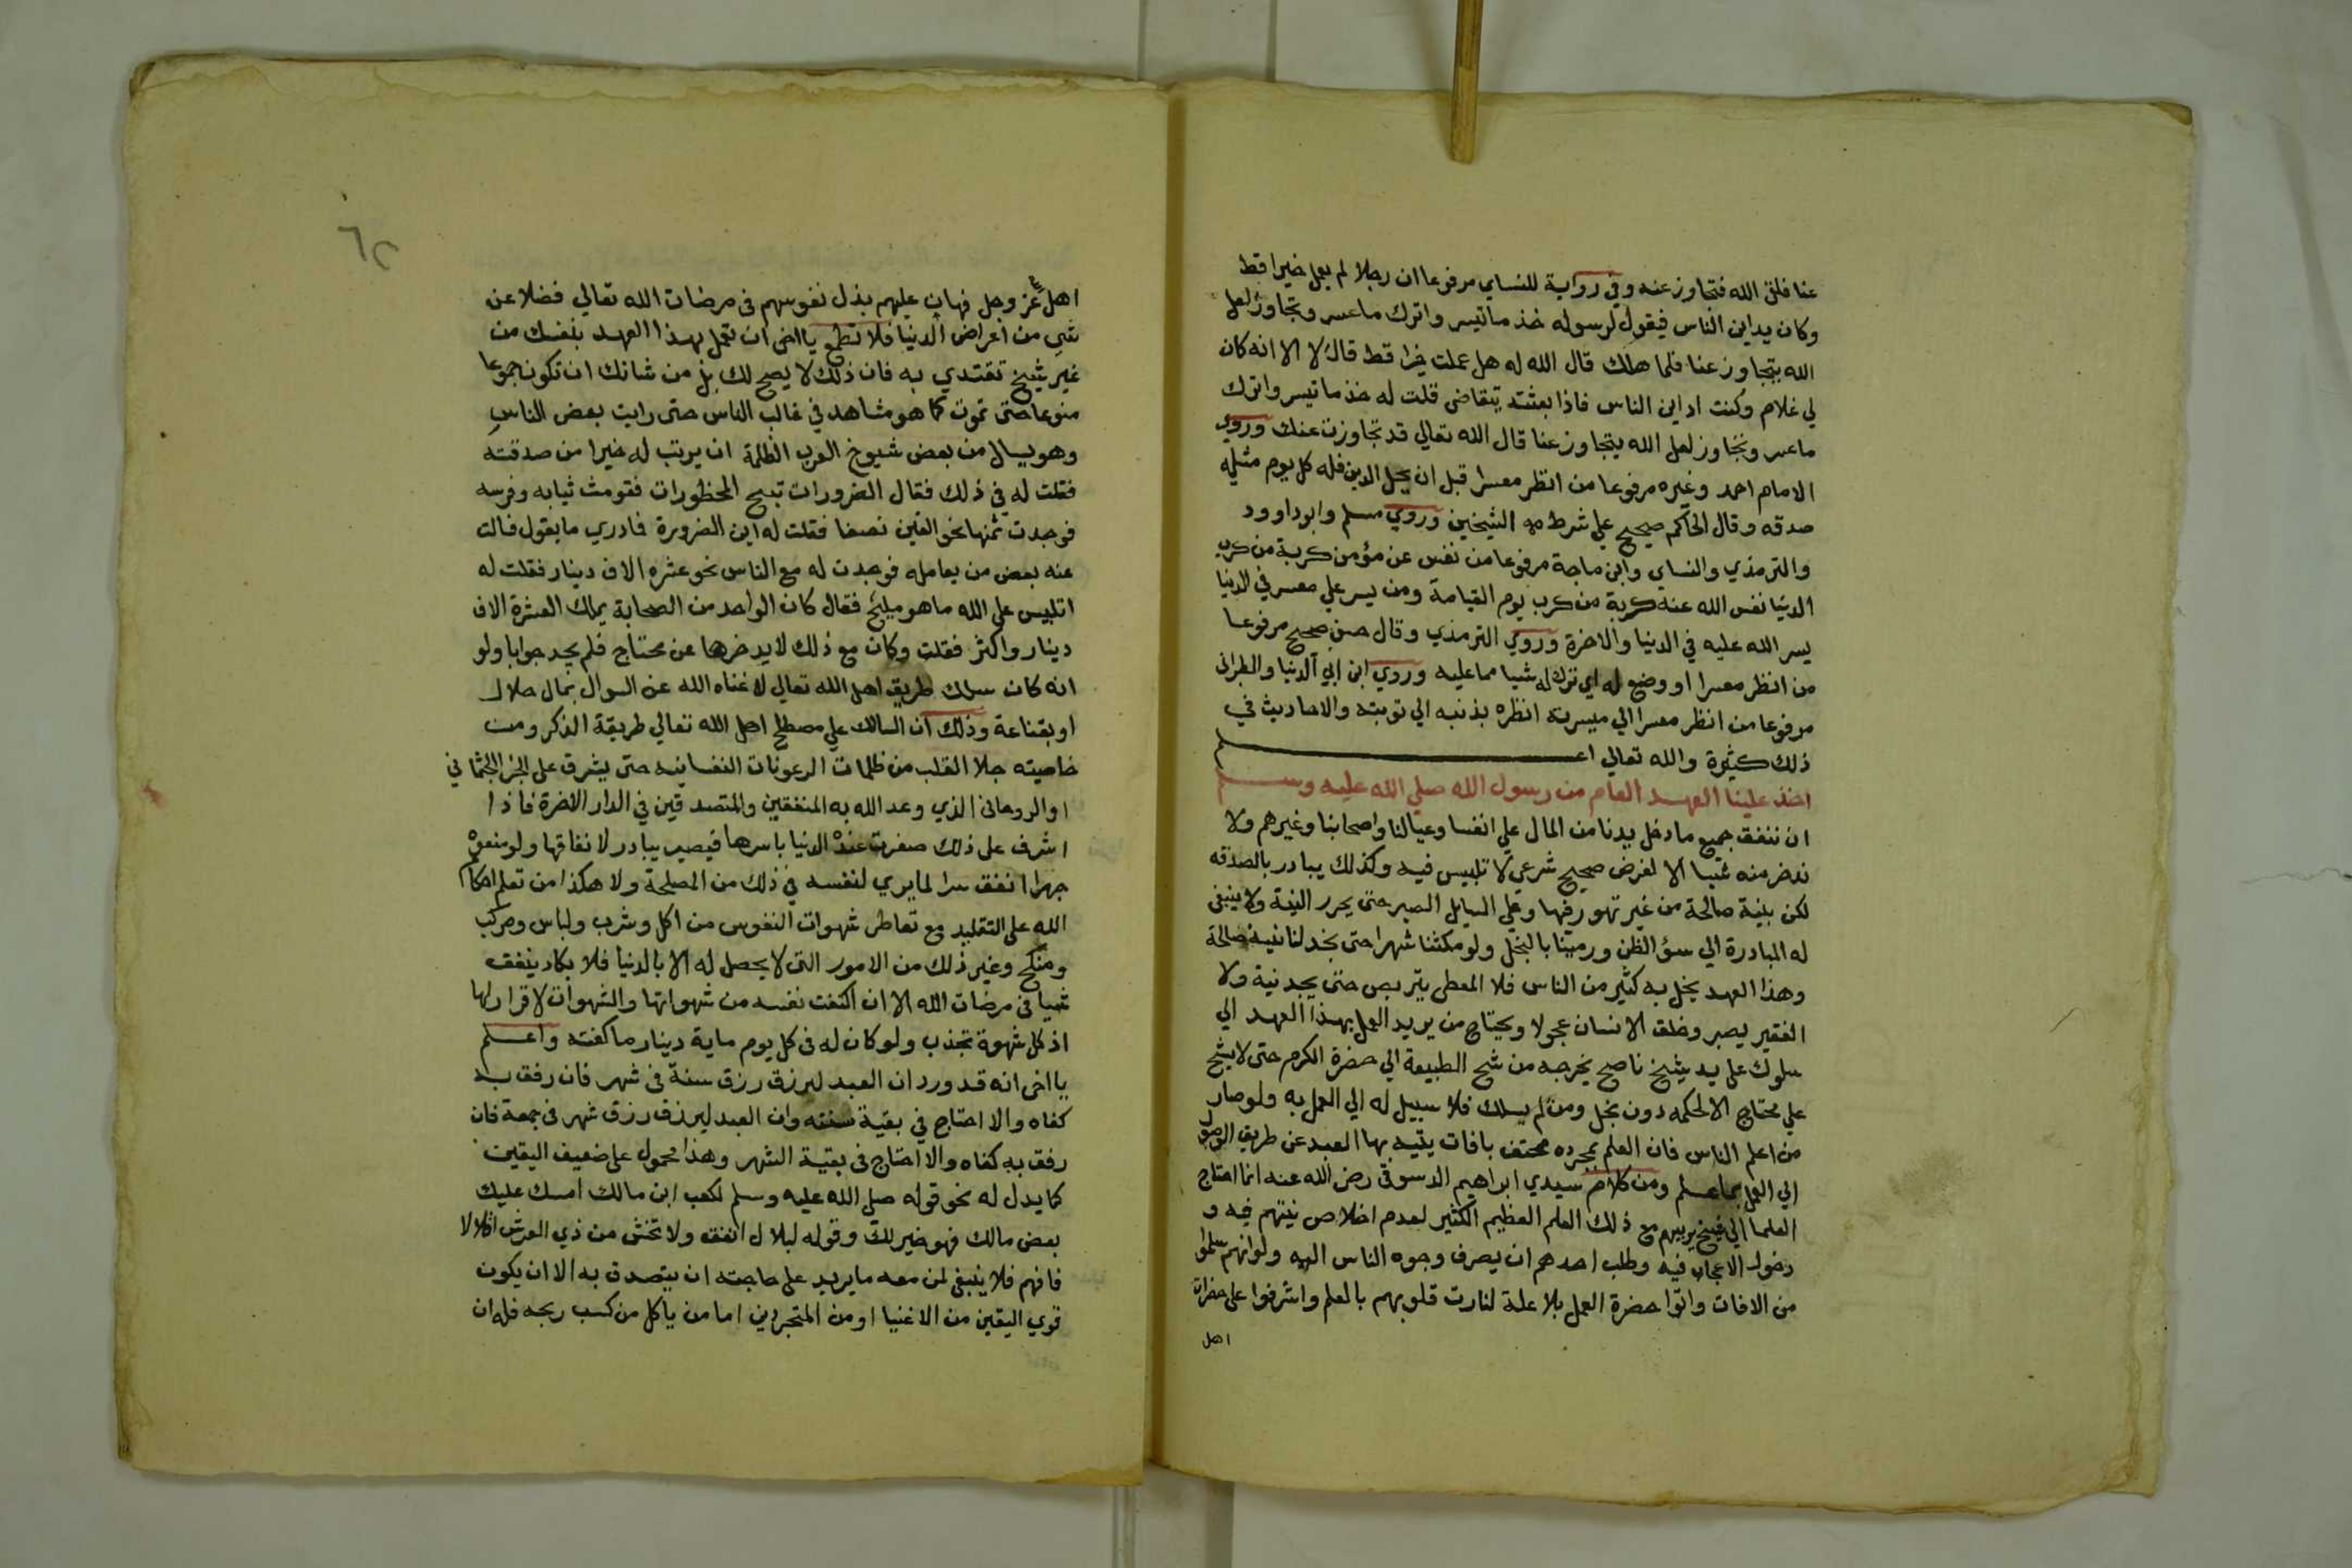 عنا فلقي الله فتجاوز عنه وفي رواية للنساي مرفوعا ان رجلا لم يعمل خيرا قط
وكان يداين الناس فيقول لرسوله خذ ما تيسر واترك ما عسر وتجاوز لعل
الله يتجاوز عنا فلما هلك قال الله له هل عملت خيرا قط قال لا الا انه كان
لي غلام وكنت اداين الناس فاذا بعثته يتقاضى قلت له خذ ما تيسر واترك
ما عسر وتجاوز لعل الله يتجاوز عنا قال الله تعالي قد تجاوزت عنك وروي
الامام احمد وغيره مرفوعا من انظر معسرا قبل ان يحل الدين فله كل يوم مثله
صدقه وقال الحاكم صحيح علي شرط الشيخين وروي مسلم وابو داوود
والترمذي والنساي وابن ماجة مرفوعا من نفس عن مؤمن كربة من كرب
الدنيا نفس الله عنه كربة من كرب يوم القيامة ومن يسر علي معسر في الدنيا
يسر الله عليه في الدنيا والاخرة وروي الترمذي وقال حسن صحيح مرفوعا
من انظر معسرا او وضع له اي ترك له شيا مما عليه وروي ابن ابي الدنيا والطبراني
مرفوعا من انظر معسرا الي ميسرته انظره بذنبه الي توبته والاحاديث في
ذلك كثيرة والله تعالي اعلم
اخذ علينا العهد العام من رسول الله صلي الله عليه وسلم
ان ننفق جميع ما دخل يدنا من المال علي انفسنا وعيالنا واصحابنا وغيرهم ولا
ندخر منه شيا الا لغرض صحيح شرعي لا تلبيس فيه وكذلك يبادر بالصدقه
لكن بنية صالحة من غير تهور فيها وعلي السايل الصبر حتى يحرر النية ولا ينبغي
له المبادرة الي سؤ الظن ورمينا بالبخل ولو مكثنا شهرا حتى نجد لنا نية صالحة
وهذا العهد يخل به كثير من الناس فلا المعطي يتربص حتى يجد نية ولا
الفقير يصبر وخلق الانسان عجولا ويحتاج من يريد العمل بهذا العهد الي
سلوك علي يد شيخ ناصح يخرجه من شح الطبيعة الي حضرة الكرم حتى لا يشح
علي محتاج الا لحكمه دون بخل ومن لم يسلك فلا سبيل له الي العمل به ولو صار
من اعلم الناس فان العلم بمجرده محتف بافات يتيه بها العبد عن طريق الوصول
الي العمل بما علم ومن كلام سيدي ابراهيم الدسوقي رضي الله عنه انما احتاج
العلما الي شيخ يربيهم مع ذلك العلم العظيم الكثير لعدم اخلاص نيتهم فيه و
دخول الاعجاب فيه وطلب احدهم ان يصرف وجوه الناس اليه ولو انهم سلموا
من الافات واتوا حضرة العمل بلا علة لنارت قلوبهم بالعلم واشرفوا على حضرات
اهل
٦٢
اهل عز وجل فهان عليهم بذل نفوسهم في مرضات الله تعالي فضلا عن
شي من اعراض الدنيا فلا تطمع يا اخي ان تعمل بهذا العهد بنفسك من
غير شيخ تقتدي به فان ذلك لا يصح لك بل من شانك ان تكون جموعا
منوعا حتى تموت كما هو مشاهد في غالب الناس حتى رايت بعض الناس
وهو يسال من بعض شيوخ العرب الظلمة ان يرتب له خبزا من صدقته
فقلت له في ذلك فقال الضرورات تبيح المحظورات فقومت ثيابه وفرسه
فوجدت ثمنها نحو الفين نصفا فقلت له اين الضرورة فما دري ما يقول فسالت
عنه بعض من يعامله فوجدت له مع الناس نحو عشره الاف دينار فقلت له
اتلبيس علي الله ما هو مليح فقال كان الواحد من الصحابة يملك العشرة الاف
دينار واكثر فقلت وكان مع ذلك لا يدخرها عن محتاج فلم يجد جوابا ولو
انه كان سلك طريق اهل الله تعالي لاغناه الله عن السوال بمال حلال
او بقناعة وذلك ان السالك علي مصطلح اهل الله تعالي طريقة الذكر ومن
خاصيته جلا القلب من ظلمات الرعونات النفسانيه حتى يشرف علي الجزا الجثماني
او الروحاني الذي وعد الله به المنفقين والمتصدقين في الدار الاخرة فاذا
اشرف على ذلك صغرت عنده الدنيا باسرها فيصير يبادر لانفاقها ولو منعوه
جهرا انفق سرا لما يري لنفسه في ذلك من المصلحة ولا هكذا من تعلم احكام
الله على التقليد مع تعاطي شهوات النفوس من اكل وشرب ولباس ومركب
ومنكح وغير ذلك من الامور التي لا يحصل له الا بالدنيا فلا يكاد ينفق
شيا في مرضات الله الا ان اكتفت نفسه من شهواتها والشهوات لا قرار لها
اذ كل شهوة تجذب ولو كان له في كل يوم ماية دينار ما كفته واعلم
يا اخي انه قد ورد ان العبد ليرزق رزق سنة في شهر فان رفق به
كفاه والا احتاج في بقية سنته وان العبد ليرزق رزق شهر في جمعة فان
رفق به كفاه والا احتاج في بقية الشهر وهذا محمول على ضعيف اليقين
كما يدل له نحو قوله صلي الله عليه وسلم لكعب ابن مالك امسك عليك
بعض مالك فهو خير لك وقوله لبلال انفق ولا تخش من ذي العرش اقلالا
فافهم فلا ينبغي لمن معه ما يزيد على حاجته ان يتصدق به الا ان يكون
قوي اليقين من الاغنيا او من المتجردين اما من ياكل من كسب ربحه فله ان